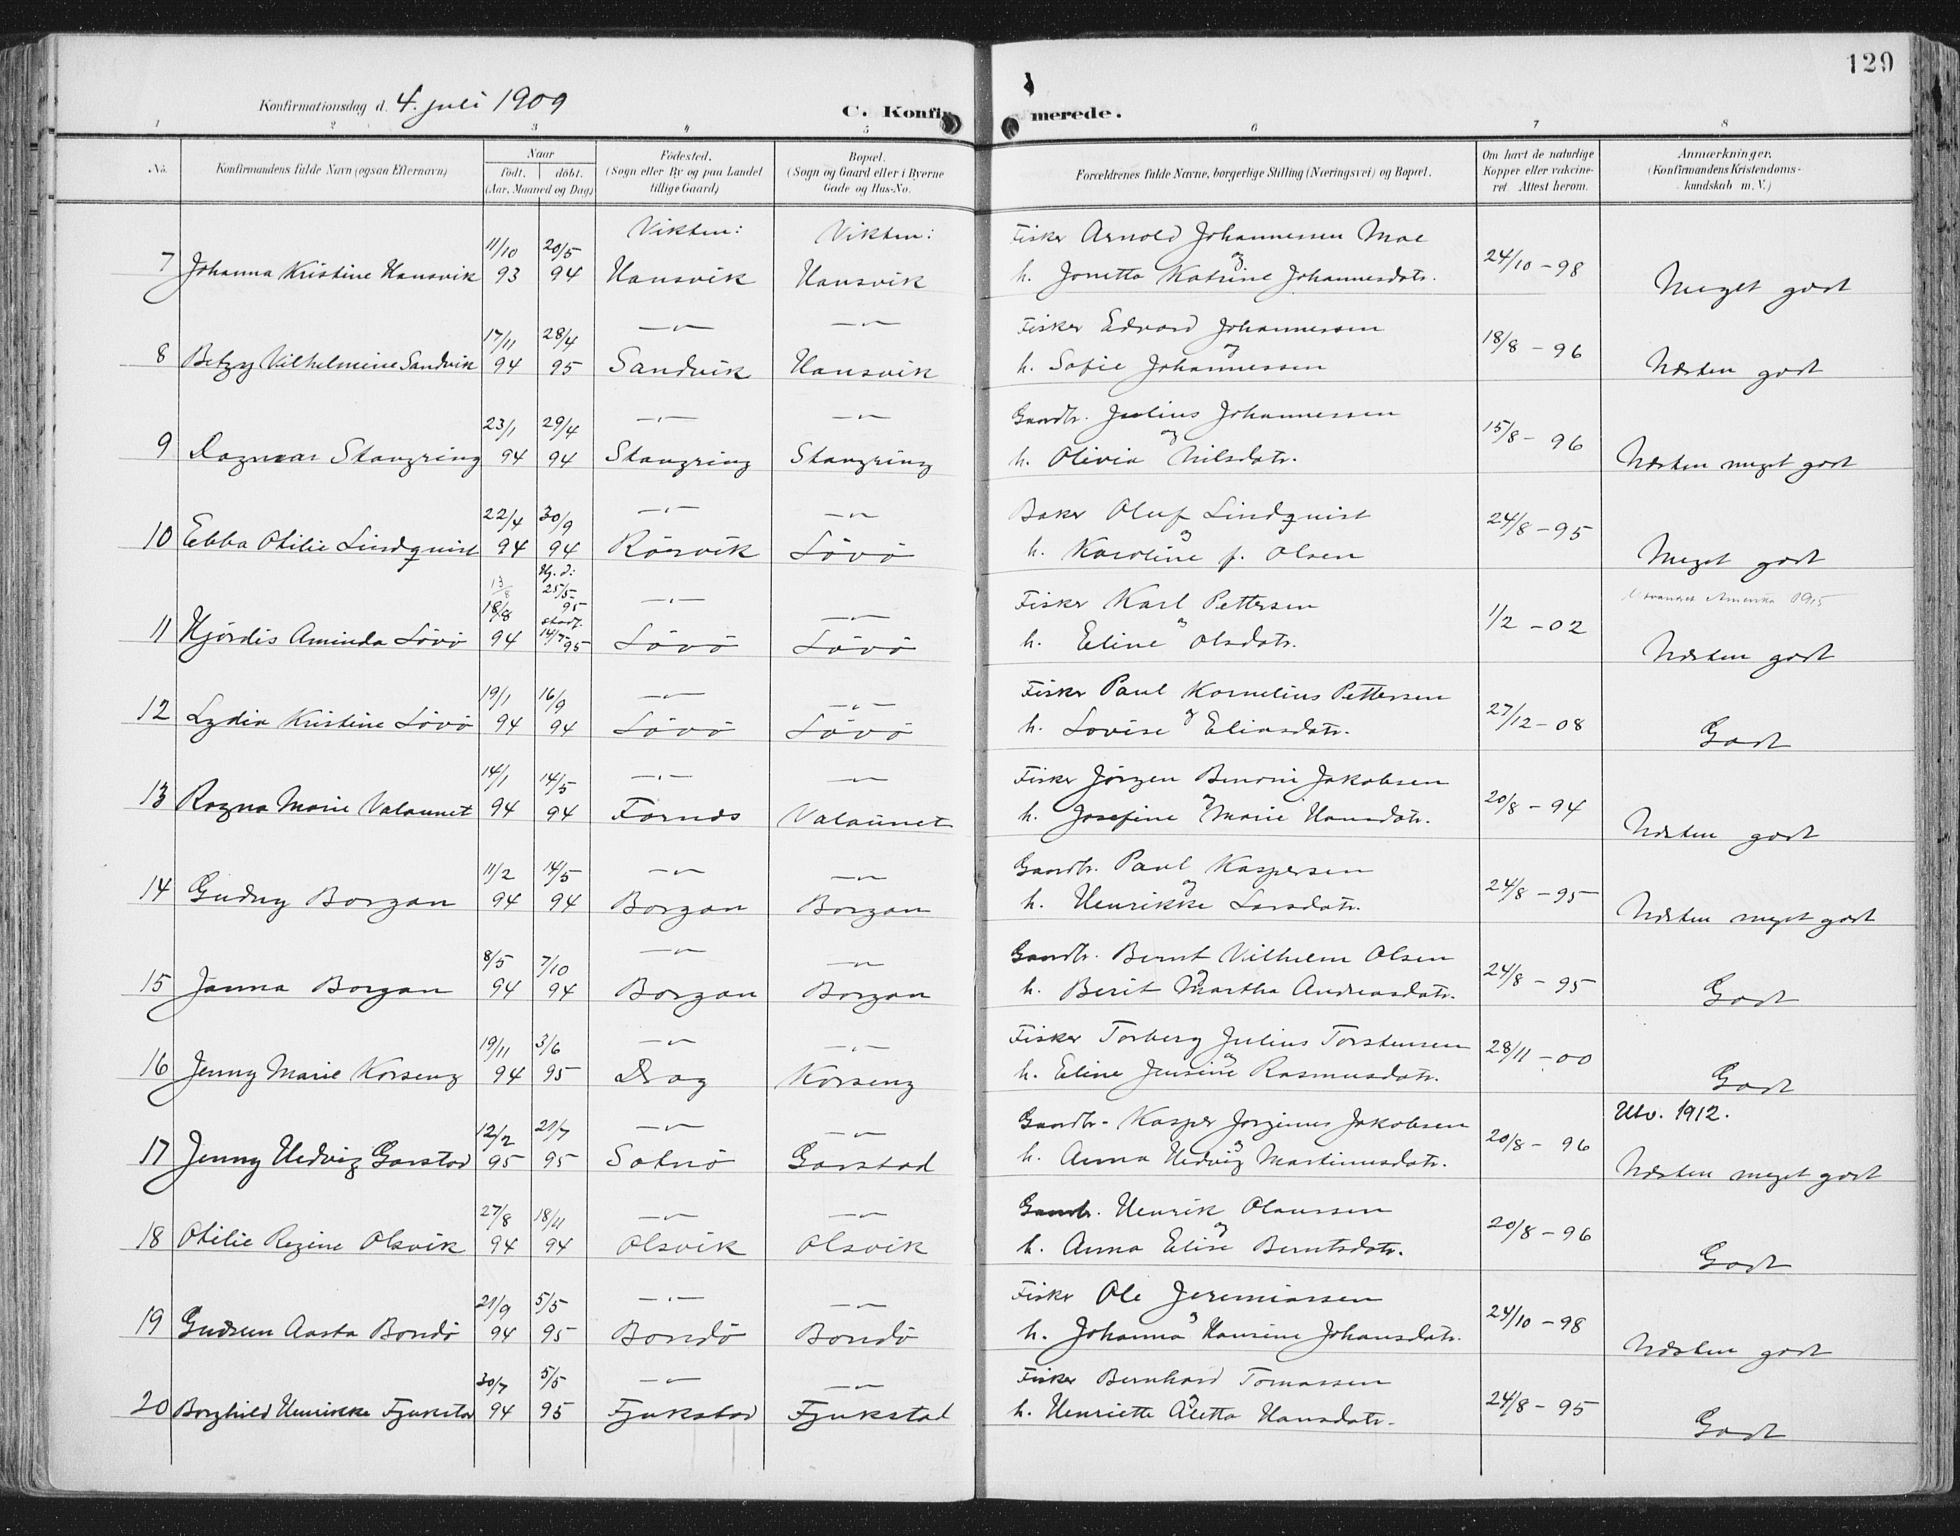 129
Konfirmationsdag d. 4. juli 1909
C. Konfirmerede.
1 2 3 4 5 6 7 8
No. Konfirmandens fulde Navn (ogsaa Efternavn) Naar født. døbt. (Aar, Maaned og Dag) Fødested. (Sogn eller By og paa Landet tillige Gaard) Bopæl. (Sogn og Gaard eller i Byerne Gade og Hus-No. Forældrenes fulde Navne, borgerlige Stilling (Næringsvei) og Bopæl. Om havt de naturlige Kopper eller vakcineret. Attest herom. Anmærkninger. (Konfirmandens Kristendomskundskab m. V.)
11/10 20/5 Vikten: Vikten: Fisker Arnold Johannessen Moe og
7 Johanna Kristine Hansvik 93 94 Hansvik Hansvik h. Jonetta Katrine Johannesdatr. 24/10-98 Meget godt
17/11 28/4 —"— —"— Fisker Edvard Johannessen og
8 Betzy Vilhelmine Sandvik 94 95 Sandvik Hansvik h. Sofie Johannessen 18/8-96 Næsten godt
23/1 29/4 —"— —"— Gaardbr. Julius Johannessen og
9 Dagmar Stangring 94 94 Stangring Stangring h. Olivia Nilsdatr. 15/8-96 Næsten meget godt
22/4 30/9 —"— —"— Baker Oluf Lindquist og
10 Ebba Otilie Lindquist 94 94 Rörvik Lövö h. Karoline f. Olsen 24/8-95 Meget godt
13/8 Hj. d: 25/5 95
18/8 stadf. —"— —"— Fisker Karl Pettersen og Amerika 1915
11 Hjördis Aminda Lövö 94 14/7-95 Lövö Lövö h. Eline Olsdatr. 1/2-02 Næsten godt
19/1 16/9 —"— —"— Fisker Paul Kornelius Pettersen og
12 Lydia Kristine Lövö 94 94 Lövö Lövö h. Lovise Eliasdatr. 27/12-08 Godt
14/1 14/5 —"— —"— Fisker Jörgen Benoni Jakobsen og
13 Ragna Marie Valaunet 94 94 Fornes Valaunet h. Josefine Marie Hansdatr. 20/8-94 Næsten godt
11/2 14/5 —"— —"— Gaardbr. Paul Kaspersen og
14 Gudny Borgan 94 94 Borgan Borgan h. Henrikke Larsdatr. 24/8-95 Næsten meget godt
8/5 7/10 —"— —"— Gaardbr. Bernt Vilhelm Olsen og
15 Janna Borgan 94 94 Borgan Borgan h. Berit Martha Andreasdatr. 24/8-95 Godt
19/11 3/6 —"— —"— Fisker Torberg Julius Torstensen og
16 Jenny Marie Korseng 94 95 Drag Korseng h. Eline Jensine Rasmusdatr. 28/11-00 Godt
12/2 21/7 —"— —"— Gaardbr. Kasper Jørginus Jakobsen og Utv. 1912.
17 Jenny Hedvig Garstad 95 95 Sætnö Garstad h. Anna Hedvig Martinusdatr. 20/8-96 Næsten meget godt
27/8 18/11 —"— —"— Gaardbr. Henrik Olaussen og
18 Otilie Regine Olsvik 94 94 Olsvik Olsvik h. Anna Elise Berntsdatr. 20/8-96 Godt
21/9 5/5 —"— —"— Fisker Ole Jeremiassen og
19 Gudrun Aasta Bondö 94 95 Bondö Bondö h. Johanna Hansine Johansdatr. 24/10-98 Næsten godt
30/7 5/5 —"— —"— Fisker Bernhard Tomassen og
20 Borghild Henrikke Fjukstad 94 95 Fjukstad Fjukstad h. Henriette Aletta Hansdatr. 24/8-95 Godt